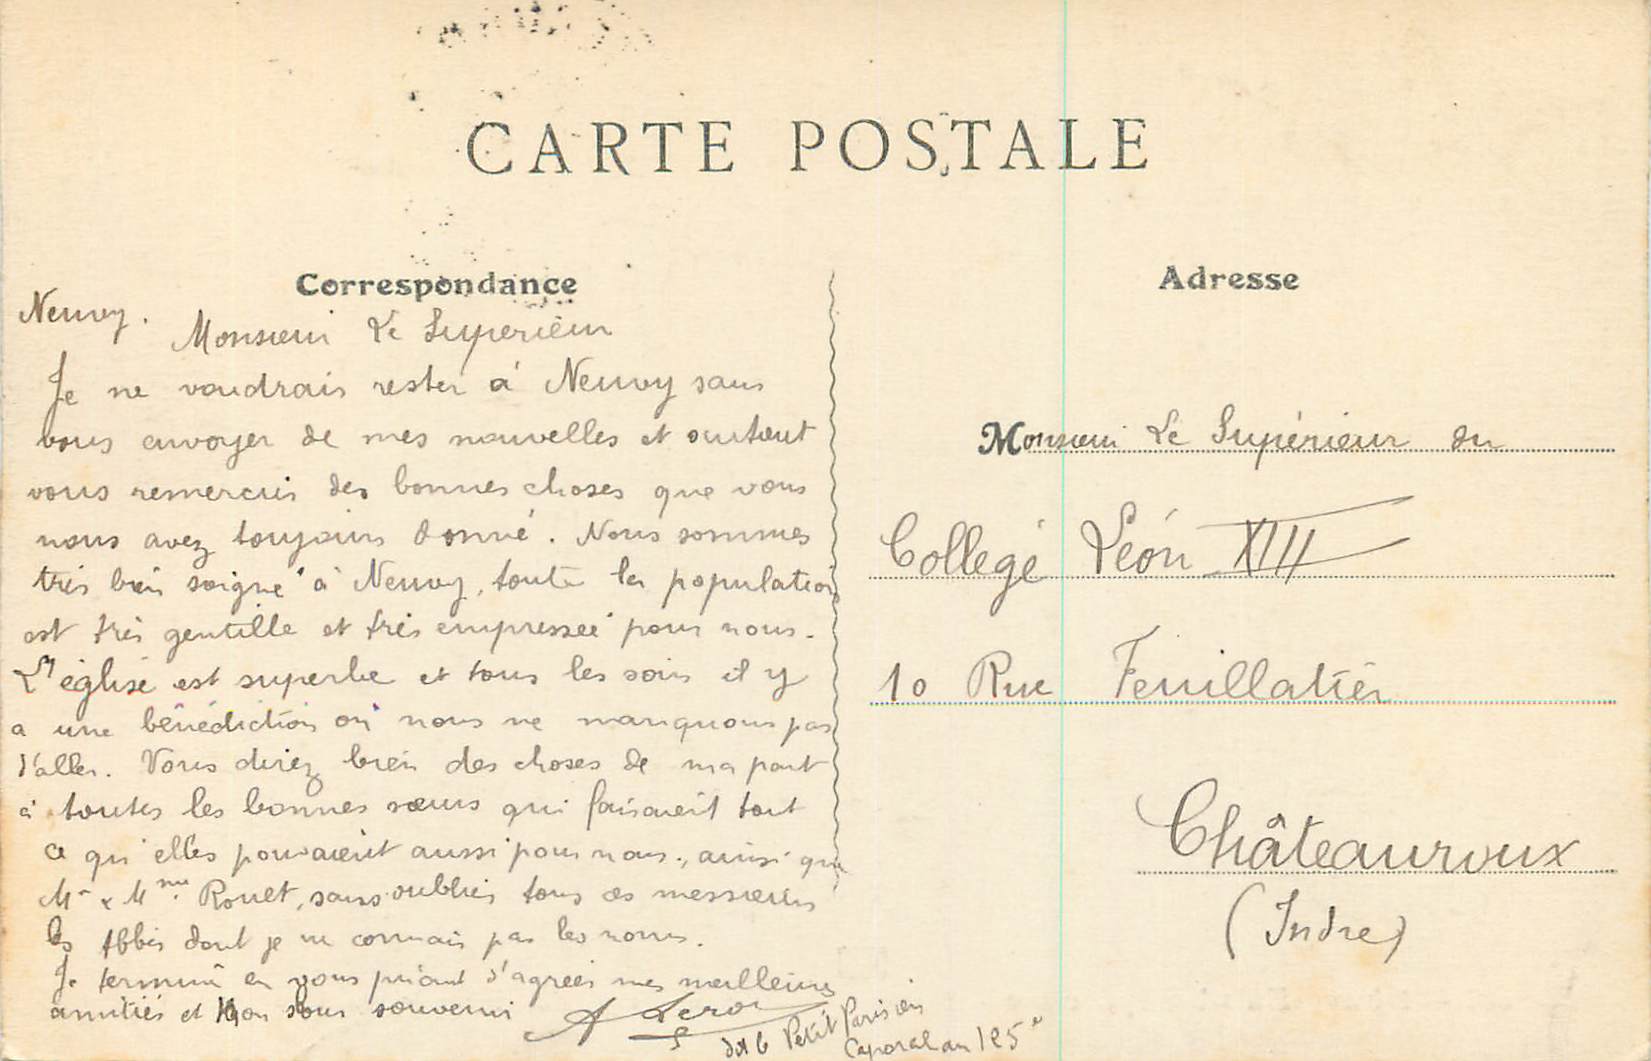 CARTE POSTALE
Correspondance
Neuvy.
Monsieur Le Supérieur
Je ne voudrais rester à Neuvy sans
vous envoyer de mes nouvelles et surtout
vous remercier des bonnes choses que vous
nous avez toujours donné. Nous sommes
très bien soigné à Neuvy, toute la population
est très gentille et très empressée pour nous.
L'église est superbe et tous les soirs il y
a une bénédiction où nous ne manquons pas
d'aller. Vous direz bien des choses de ma part
à toutes les bonnes sœurs qui faisaient tout
ce qu'elles pouvaient aussi pour nous, ainsi que
Mr & Mme Rouet, sans oublier tous ces messieurs
les Abbés dont je ne connais pas les noms.
Je termine en vous priant d'agréer mes meilleures
amitiés et mon bon souvenir
A Leroy
dit le Petit Parisien
Caporal au 125e
Adresse
Monsieur Le Supérieur du
Collège Léon XIII
10 Rue Feuillatier
Châteauroux
(Indre)